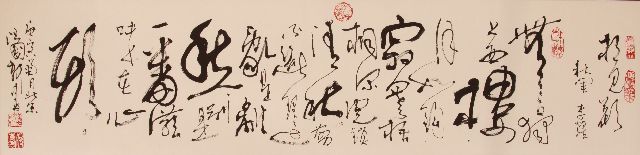 相見歡
李煜
無言獨
上西樓
月如鉤
寂寞梧
桐深院鎖
清秋剪
不斷理還
亂是離
愁別是
一番滋
味在心
頭